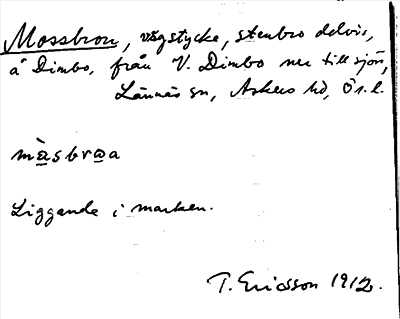 Mossbron, vägstycke, stenbro delvis,
å Dimbo, från V. Dimbo ner till sjön,
Lännäs sn, Askers hd, Ör. l.
màsbrωa
Liggande i marken.
T. Ericsson 1912.